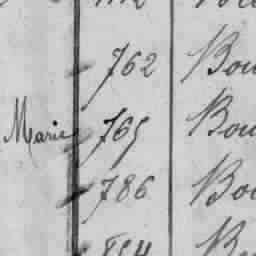 762 Bou
Marie 765 Bou
786 Bou
854 B